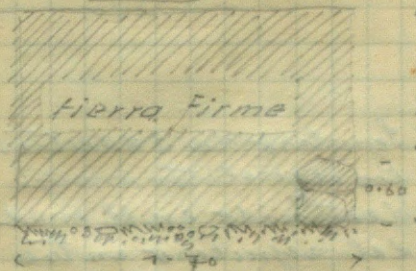 tierra Firme
0.60
1-70